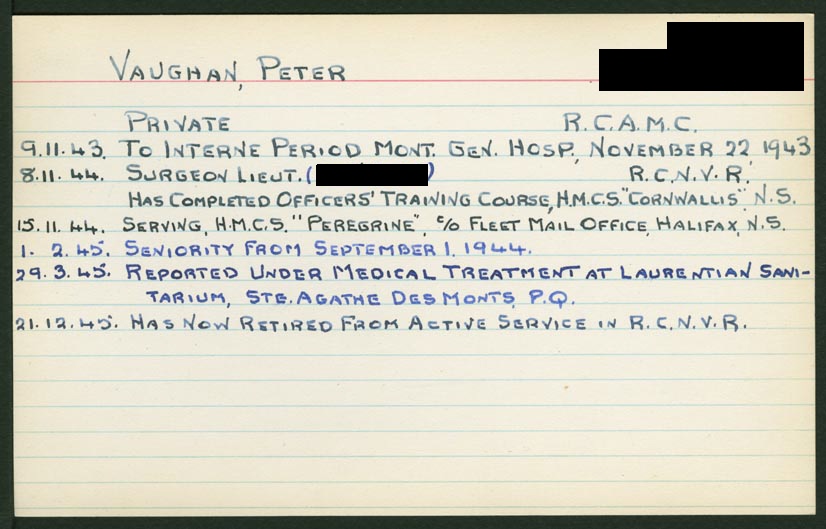 VAUGHAN, PETER
PRIVATE R.C.A.M.C.
9.11.43. TO INTERNE PERIOD MONT. GEN. HOSP., NOVEMBER 22 1943
8.11.44. SURGEON LIEUT. ( ) R.C.N.V.R.
HAS COMPLETED OFFICERS' TRAINING COURSE, H.M.C.S. "CORNWALLIS" N.S.
15.11.44. SERVING, H.M.C.S. "PEREGRINE", C/O FLEET MAIL OFFICE, HALIFAX, N.S.
1. 2.45. SENIORITY FROM SEPTEMBER 1, 1944.
29.3.45. REPORTED UNDER MEDICAL TREATMENT AT LAURENTIAN SANI-
TARIUM, STE. AGATHE DES MONTS, P.Q.
21.12.45. HAS NOW RETIRED FROM ACTIVE SERVICE IN R.C.N.V.R.